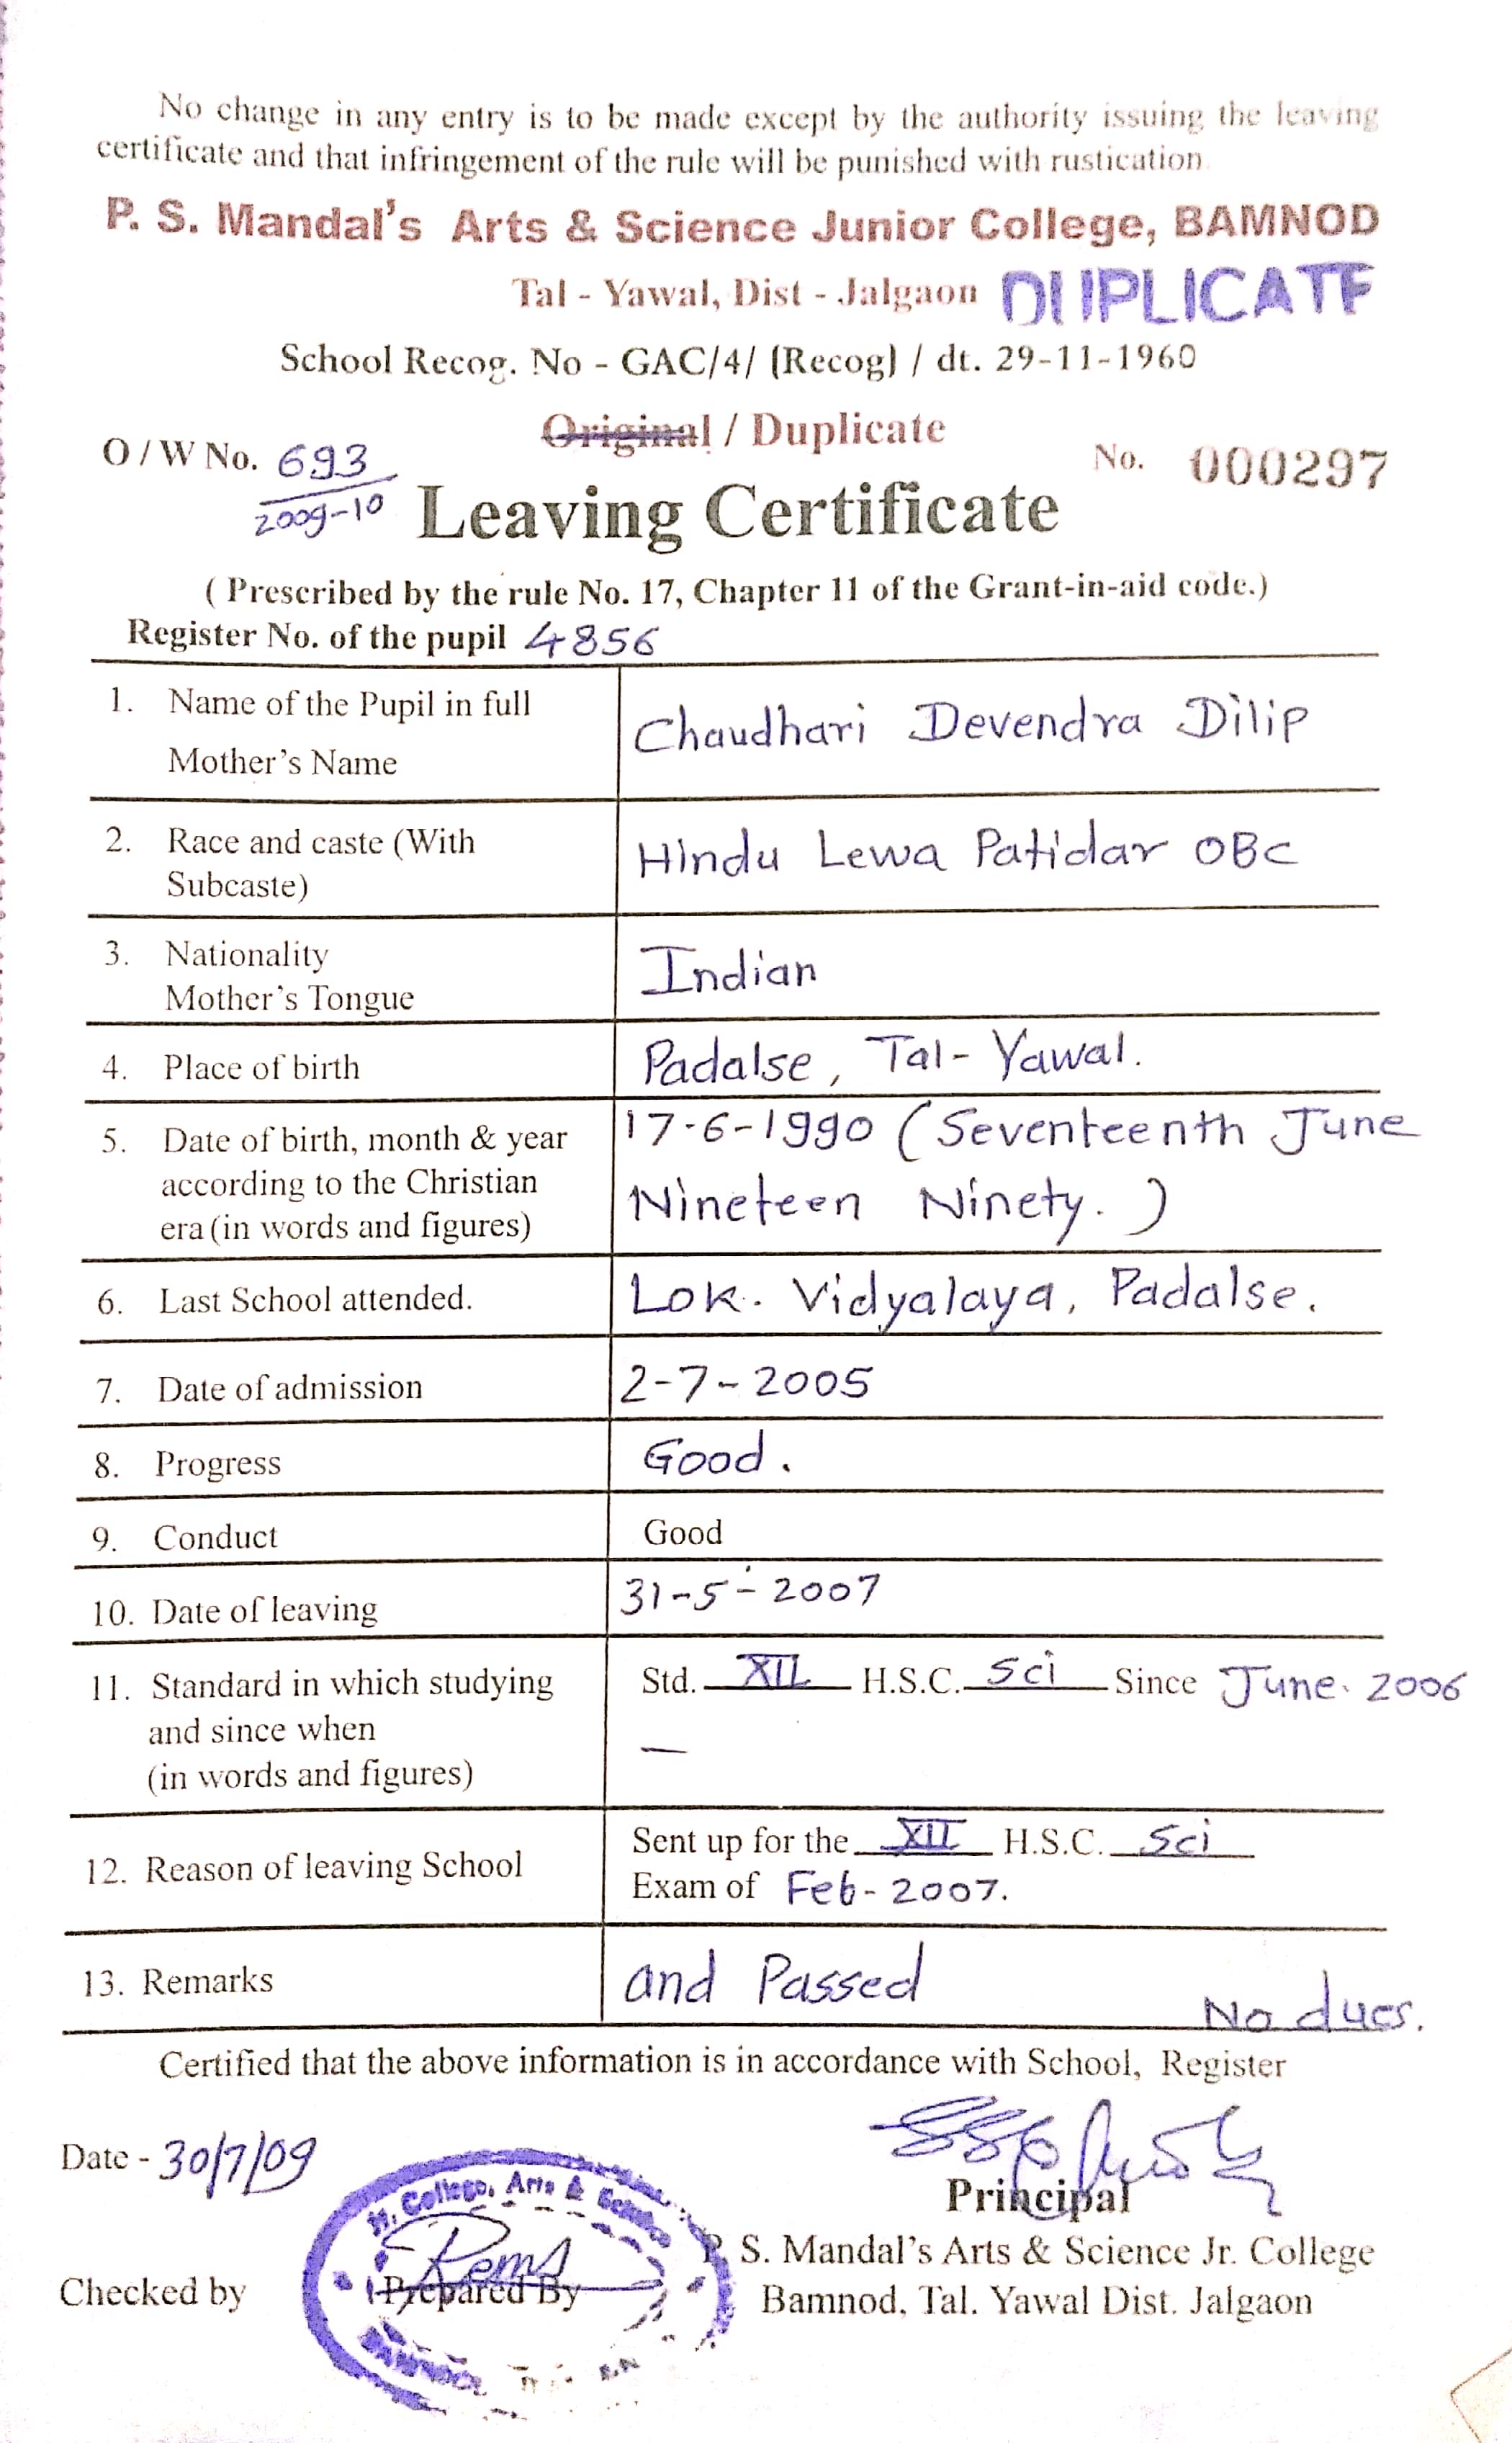 No change in any entry is to be made except by the authority issuing the leaving
certificate and that infringement of the rule will be punished with rustication
P. S. Mandal's Arts & Science Junior College, BAMNOD
Tal - Yawal, Dist - Jalgaon DUPLICATE
School Recog. No - GAC/4/ (Recog) / dt. 29-11-1960
Original / Duplicate
O / W No. 693 No. 000297
2009-10 Leaving Certificate
( Prescribed by the rule No. 17, Chapter 11 of the Grant-in-aid code.)
Register No. of the pupil 4856
1. Name of the Pupil in full Chaudhari Devendra Dilip
Mother's Name
2. Race and caste (With Hindu Lewa Patidar OBC
Subcaste)
3. Nationality Indian
Mother's Tongue
4. Place of birth Padalse, Tal- Yawal.
5. Date of birth, month & year 17-6-1990 (Seventeenth June
according to the Christian Nineteen Ninety.)
era (in words and figures)
6. Last School attended. Lok. Vidyalaya, Padalse.
7. Date of admission 2-7-2005
8. Progress Good.
9. Conduct Good
10. Date of leaving 31-5-2007
11. Standard in which studying Std. XII H.S.C. Sci Since June. 2006
and since when —
(in words and figures)
12. Reason of leaving School Sent up for the XII H.S.C. Sci
Exam of Feb- 2007.
13. Remarks and Passed No dues.
Certified that the above information is in accordance with School, Register
Date - 30/7/09
Principal
College, Arts &
P. S. Mandal's Arts & Science Jr. College
Checked by Prepared By Bamnod, Tal. Yawal Dist. Jalgaon